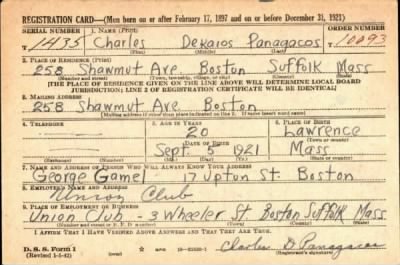 REGISTRATION CARD—(Men born on or after February 17, 1897 and on or before December 31, 1921)
SERIAL NUMBER 1. NAME (Print) ORDER NUMBER
T 1435 Charles Dekaios Panagacos 10093
(First) (Middle) (Last)
2. PLACE OF RESIDENCE (Print)
258 Shawmut Ave Boston Suffolk Mass
(Number and street) (Town, township, village, or city) (County) (State)
[THE PLACE OF RESIDENCE GIVEN ON THE LINE ABOVE WILL DETERMINE LOCAL BOARD
JURISDICTION; LINE 2 OF REGISTRATION CERTIFICATE WILL BE IDENTICAL]
3. MAILING ADDRESS
258 Shawmut Ave Boston
[Mailing address if other than place indicated on line 2. If same insert word same]
4. TELEPHONE 5. AGE IN YEARS 6. PLACE OF BIRTH
20 Lawrence
DATE OF BIRTH (Town or county)
Sept. 5 1921 Mass
(Exchange) (Number) (Mo.) (Day) (Yr.) (State or country)
7. NAME AND ADDRESS OF PERSON WHO WILL ALWAYS KNOW YOUR ADDRESS
George Gamel 17 Upton St. Boston
8. EMPLOYER'S NAME AND ADDRESS
Union Club
9. PLACE OF EMPLOYMENT OR BUSINESS
Union Club - 3 Wheeler St. Boston Suffolk Mass
(Number and street or R. F. D. number) (Town) (County) (State)
I AFFIRM THAT I HAVE VERIFIED ABOVE ANSWERS AND THAT THEY ARE TRUE.
D. S. S. Form 1
(Revised 1-1-42) Charles D Panagacos
(Registrant's signature)